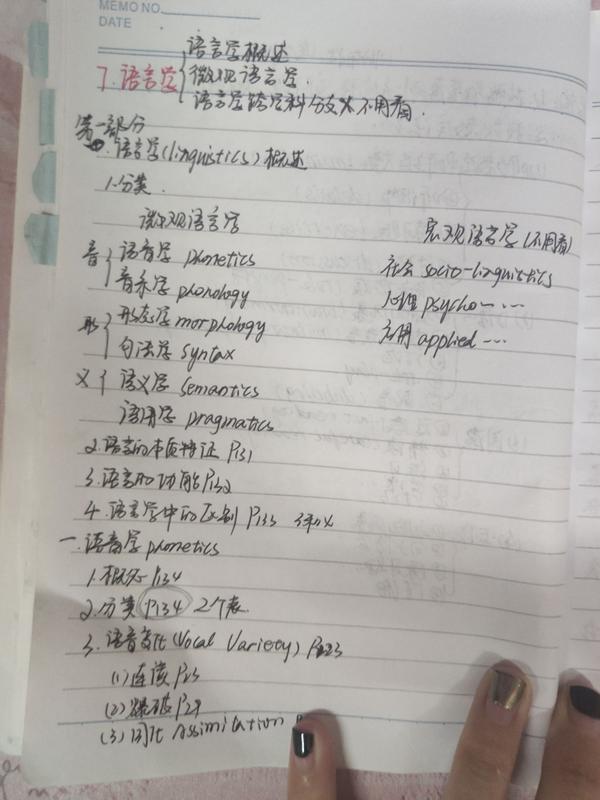 MEMO NO.
DATE
语言学概述
7. 语言学 微观语言学.
语言学跨学科分支 不用看.
第一部分
一. 语言学(linguistics)概述
1.分类.
微观语言学 宏观语言学(不用看)
音 语音学 phonetics 社会 socio-linguistics
音系学 phonology 心理 psycho-- ...
形 形态学 morphology 应用 applied ...
句法学 syntax
义 语义学 semantics
语用学 pragmatics
2.语言的本质特征 P131
3.语言的功能P132
4.语言学中的区别 P133
一.语音学 phonetics
1.概况 P134
2.分类 P134 2个表.
3.语音变化(Vocal Variety) P23
(1)连读 P23
(2)爆破 P24
(3)同化 Assimilation